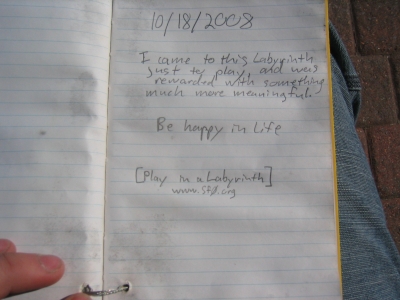 10/18/2008
I came to this Labyrinth
just to play, and was
rewarded with something
much more meaningful.
Be happy in Life
[Play in a Labyrinth]